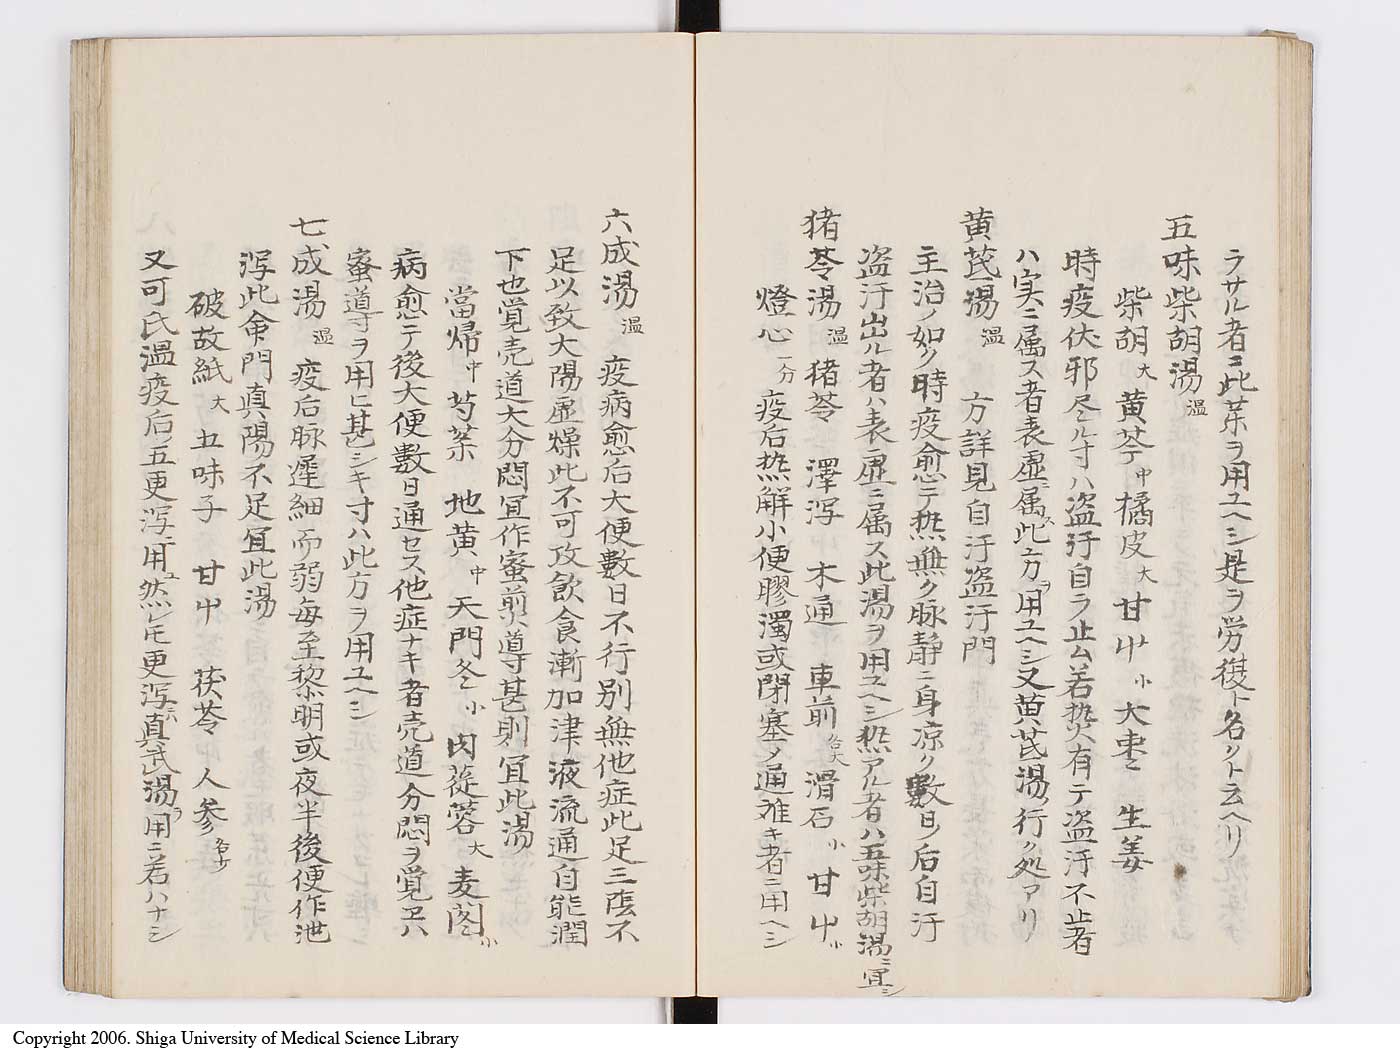 ラサル者ニ此薬ヲ用ユヘシ是ヲ労復ト名クト云ヘリ
五味柴胡湯 温
柴胡 大 黄芩 中 橘皮 大 甘艸 小 大棗 生姜
時疫伏邪尽ル寸ハ盗汗自ラ止ム若熱有テ盗汗不止者
ハ実ニ属ス者表虚ニ属ス此方ヲ用ユヘシ又黄芪湯ヲ行ク処アリ
黄芪湯 温 方詳見自汗盗汗門
主治ノ如ク時疫愈テ熱無ク脉静ニ身凉ク數日ノ后自汗
盗汗出ル者ハ表虚ニ属ス此湯ヲ用ユヘシ熱アル者ハ五味柴胡湯ニ宜シ
猪苓湯 温 猪苓 澤瀉 木通 車前 各大 滑石 小 甘艸 小
燈心 一分 疫后熱解小便膠濁或閉塞メ通難キ者ニ用ヘシ
六成湯 温 疫病愈后大便數日不行別無他症此足三陰不
足以致大陽虚燥此不可攻飲食漸加津液流通自能潤
下也覚売道大分悶宜作蜜煎導甚則宜此湯
當帰 中 芍薬 地黄 中 天門冬 小 肉蓯蓉 大 麦閣 小
病愈テ後大便數日通セス他症ナキ者売道分悶ヲ覚ヱハ
蜜導ヲ用ヒ甚シキ寸ハ此方ヲ用ユヘシ
七成湯 温 疫后脉遅細而弱毎至黎明或夜半後便作泄
瀉此命門真陽不足宜此湯
破故紙 大 五味子 甘艸 茯苓 人参 各少
又可氏温疫后五更瀉ニ用ユ然レ𪜈更瀉ハ真武湯ヲ用ニ若ハナシ